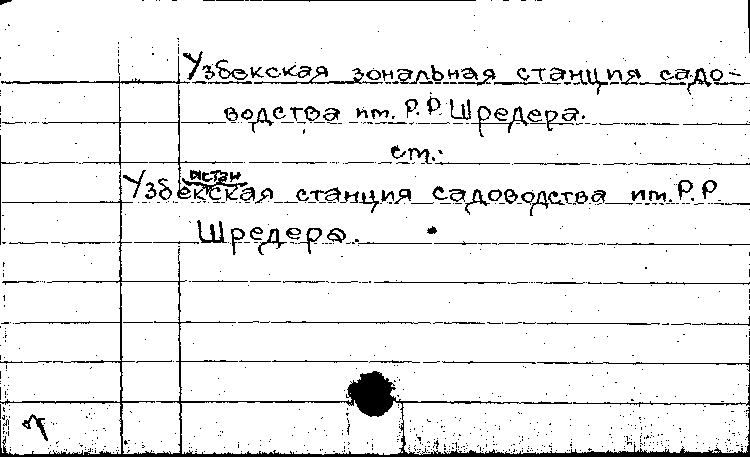 Узбекская зональная станция садо-
водства им. Р.Р. Шредера.
см.:
истан
Узбекская станция садоводства им. Р.Р
Шредера.